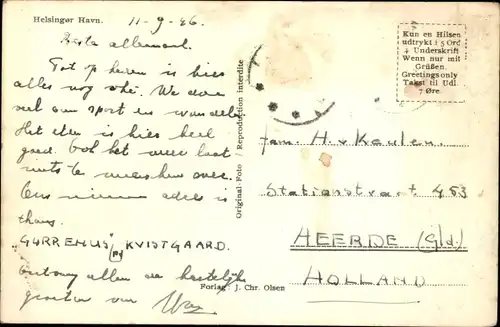 Helsingør Havn.
11-9-46.
Beste allemaal.
Tot op heden is hier
alles nog okei. We doen
veel aan sport en wandelen
Het eten is hier heel
goed. Ook het weer laat
niets te wenschen over.
Ons nieuwe adres is
thans:
"GURREHUS" KVISTGAARD.
Ontvang allen de hartelijke
groeten van
Forlag: J. Chr. Olsen
Original-Foto Reproduction interdite
Kun en Hilsen
udtrykt i 5 Ord
+ Underskrift
Wenn nur mit
Grüßen.
Greetings only
Takst til Udl.
7 Øre.
Fam. H. v Keulen.
Stationstraat 453
HEERDE (Gld.)
HOLLAND